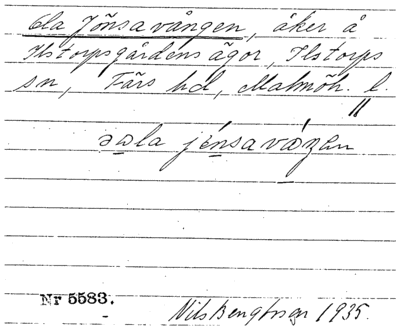 Ola Jönsavången, åker å
Ilstorpsgårdens ägor, Ilstorps
sn, Färs hd, Malmöh. l.
"
Nr 5583.
Nils Bengtsson 1935.